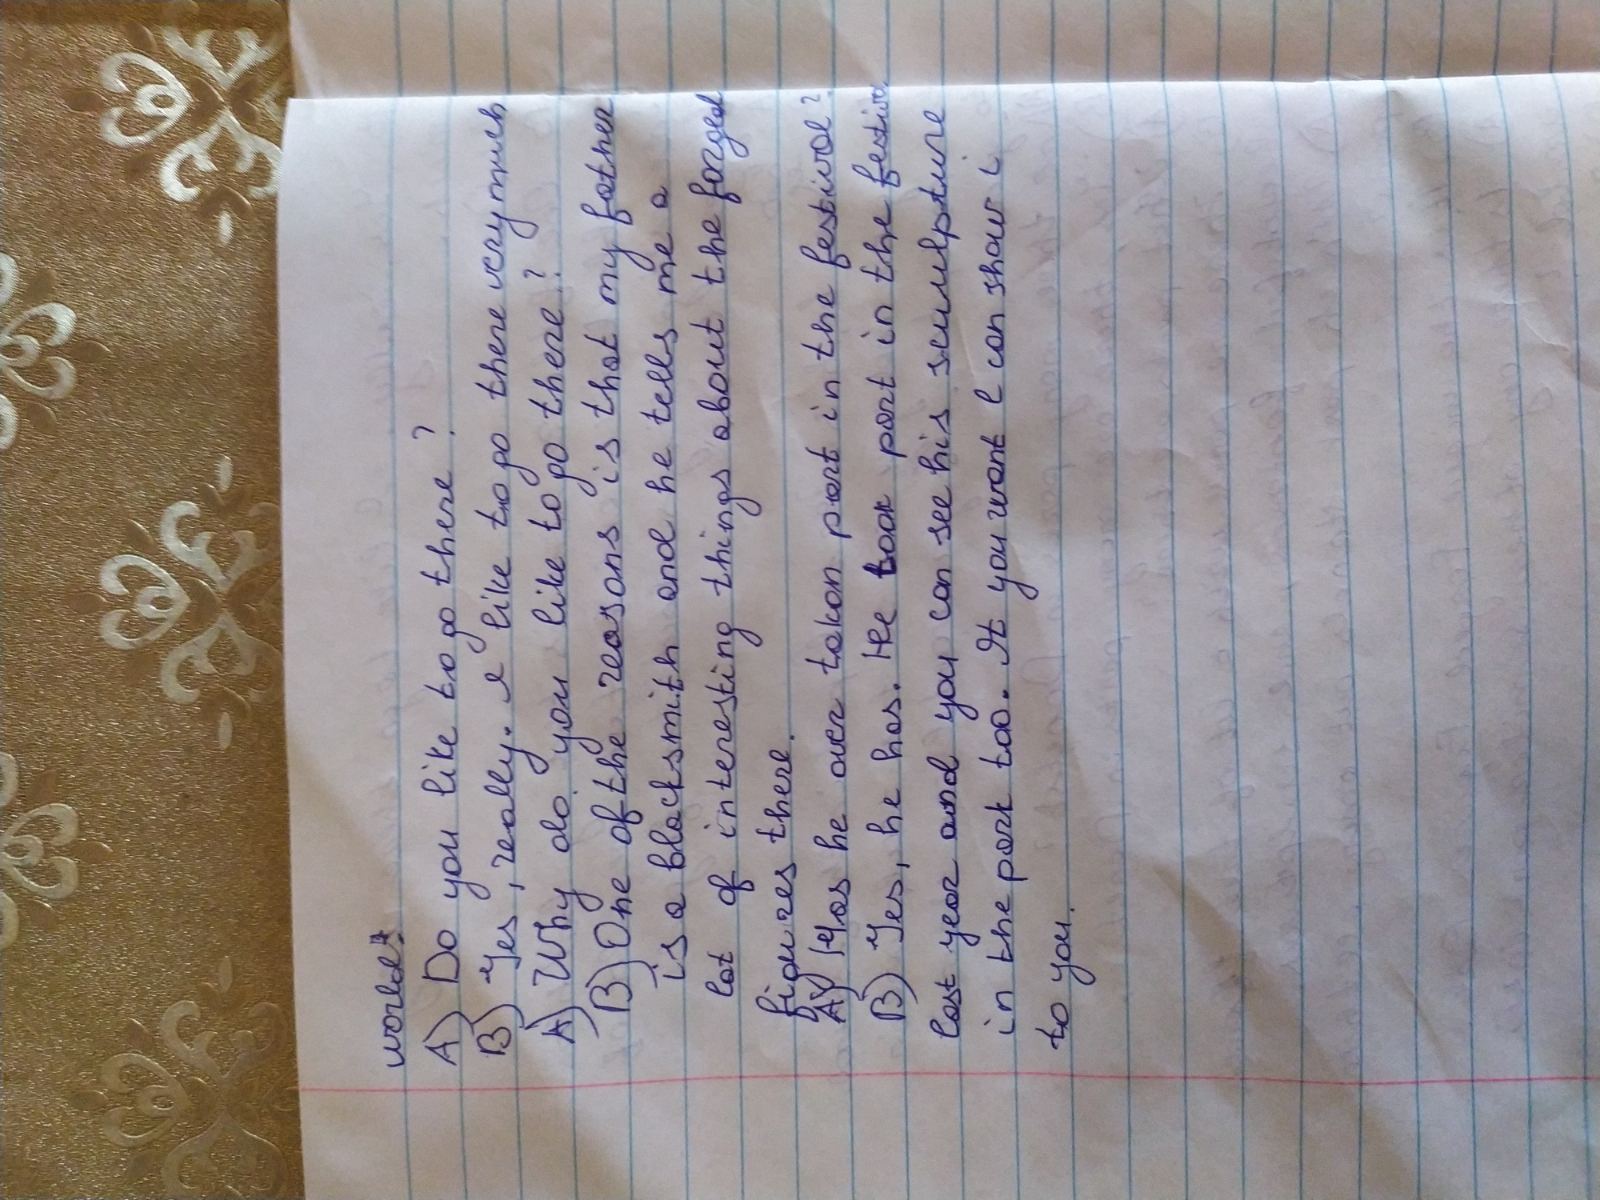 world?
A) Do you like to go there?
B) Yes, really. I like to go there very much
A) Why do you like to go there?
B) One of the reasons is that my father
is a blacksmith and he tells me a
lot of interesting things about the forged
figures there.
A) Has he ever taken part in the festival?
B) Yes, he has. He took part in the festiva
last year and you can see his sculpture
in the park too. If you want I can show i
to you.